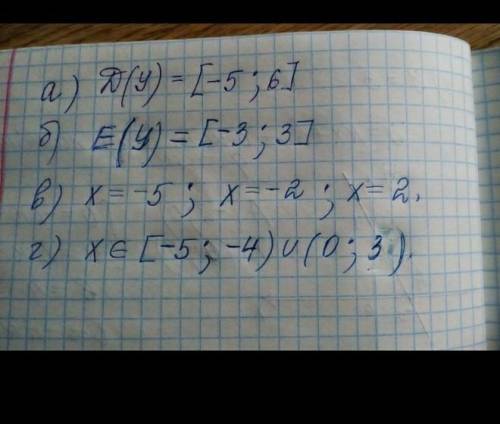 а) D(y) = [-5 ; 6]
б) E(y) = [-3 ; 3]
в) x = -5 ; x = -2 ; x = 2.
г) x ∈ [-5 ; -4) ∪ (0 ; 3).